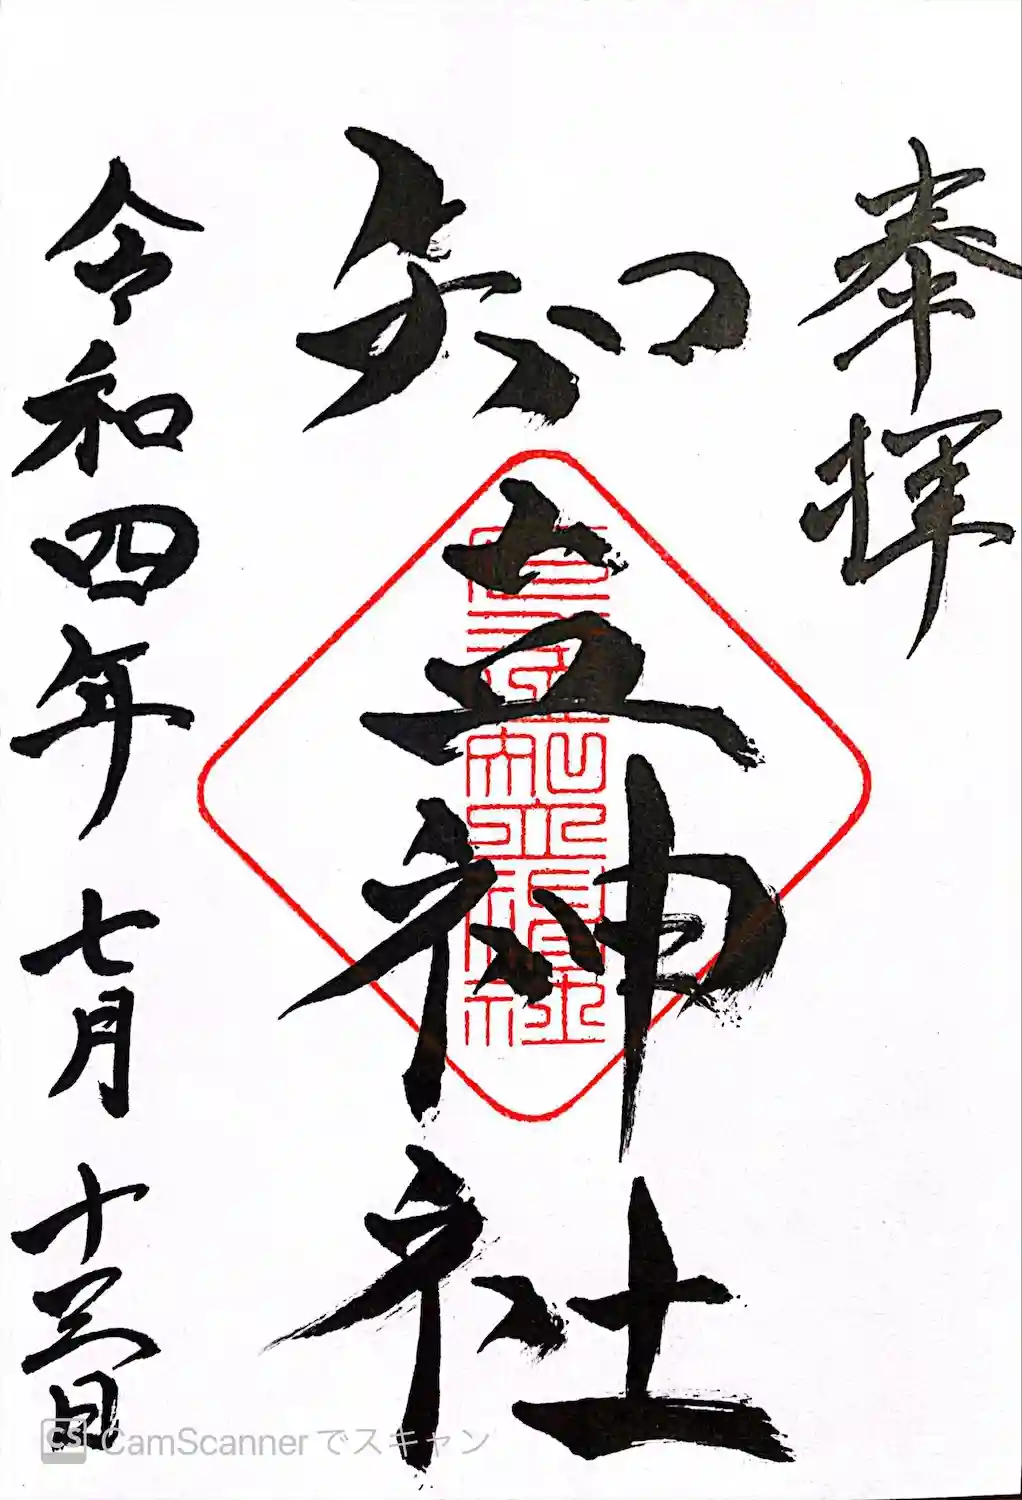 奉拝
知立神社
令和四年七月十三日
CS CamScanner でスキャン